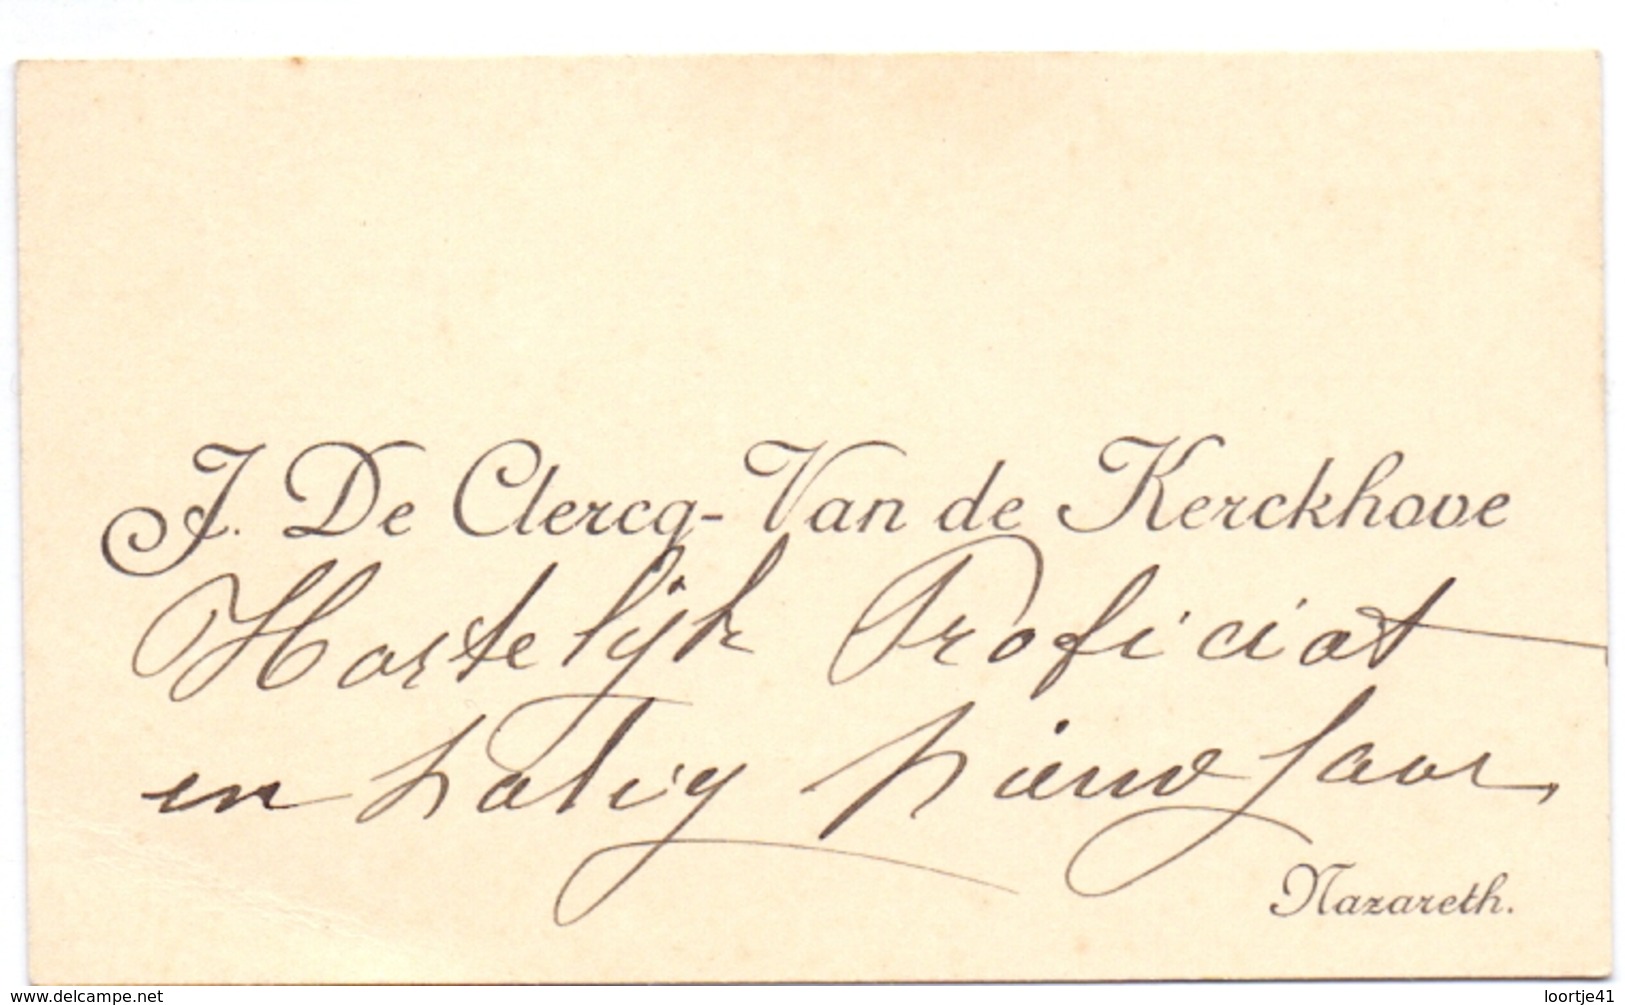 J. De Clercq-Van de Kerckhove
Hartelijk Proficiat
en Zalig Nieuwjaar
Nazareth.
www.delcampe.net
loortje41